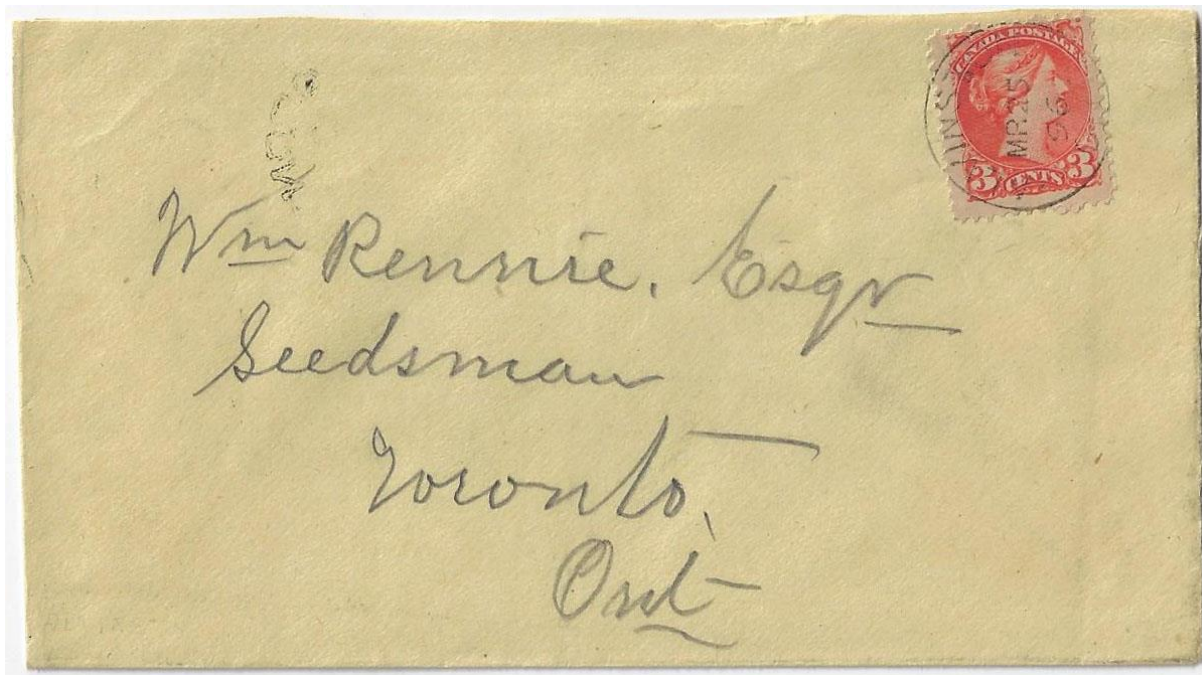 CANADA POSTAGE
3 CENTS 3
MR 25
96
Wm Rennie, Esqr
Seedsman
Toronto,
Ont